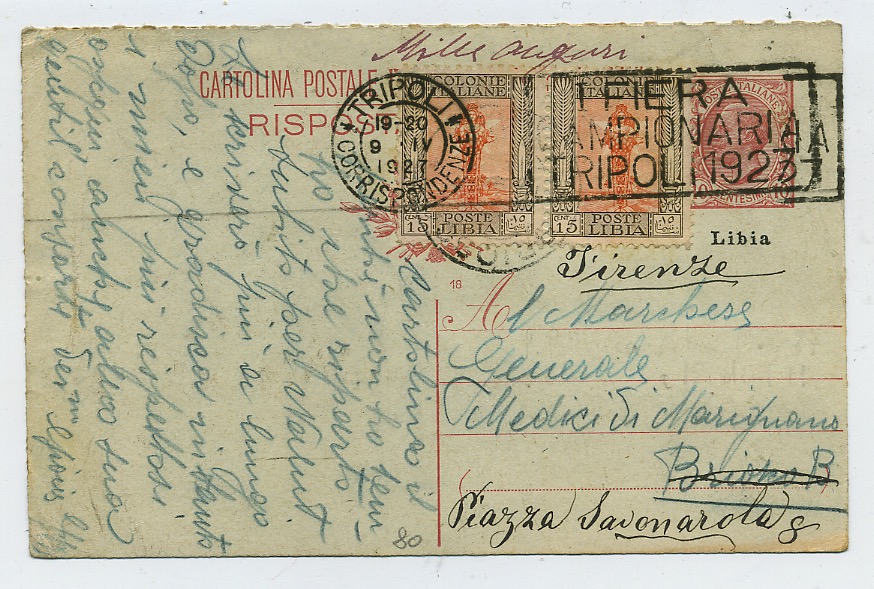 Mille auguri
CARTOLINA POSTALE
RISPOS
TRIPOLI
19-20
9 IV
1927
CORRISPONDENZE
COLONIE
ITALIANE
CENT 15
POSTE
LIBIA
COLONIE
ITALIANE
CENT 15
POSTE
LIBIA
I FIERA
CAMPIONARIA
TRIPOLI 1927
POSTE ITALIANE
CENTESIMI
Libia
18
Firenze
Al Marchese
Generale
Medici di Marignano
Piazza Savonarola 8
80
Cartolina il
non ho tem-
po che riparto
subito per
Le scriverò più a lungo
dopo, e gradisca intanto
i miei più rispettosi
ossequi anche alla sua
gentil consorte